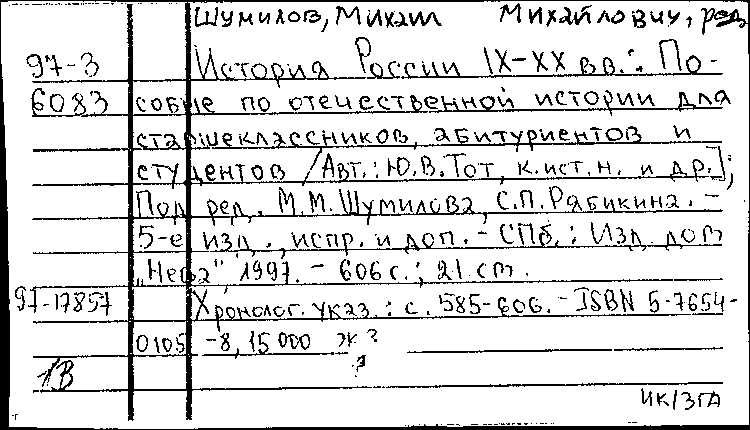 Шумилов, Михаил Михайлович, ред
97-3 История России IX-XX вв.: По-
6083 собие по отечественной истории для
старшеклассников, абитуриентов и
студентов / Авт.: Ю.В.Тот, к.ист.н. и др.];
Под ред. М.М.Шумилова, С.П.Рябикина. -
5-е изд., испр. и доп. - СПб.: Изд. дом
„Нева", 1997. - 606 с.; 21 cm.
97-17857 Хронолог. указ.: с. 585-606. - ISBN 5-7654-
0105-8, 15000 эк?
1В
ИК/ЗГА